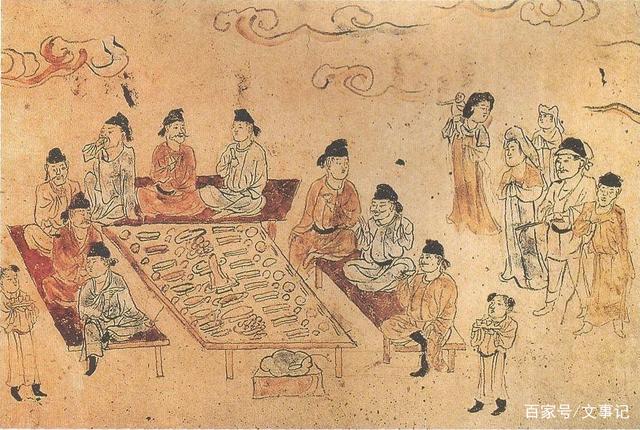 百家号/文事记